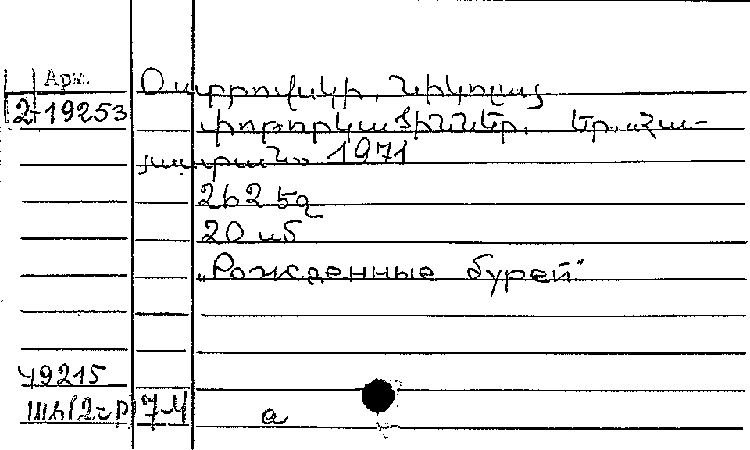 Арм.
2-19253
Օստրովսկի, Նիկոլայ
Փոթորկածիններ. Եր., Հա-
յաստան. 1971
262 էջ
20 սմ
„Рожденные бурей"
49215
7-4
a